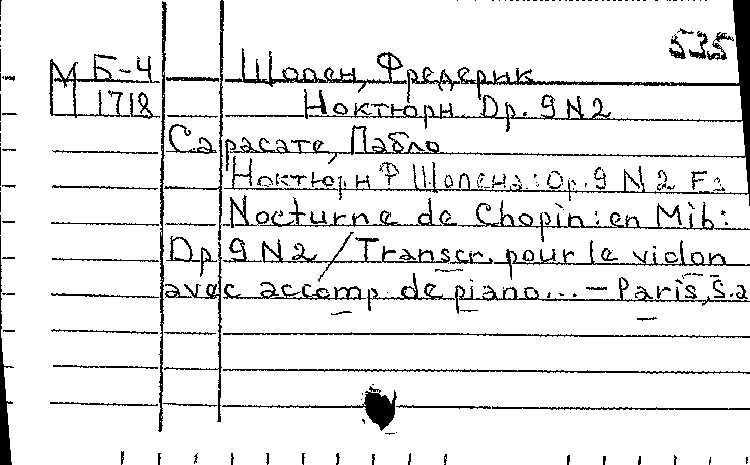 535
М Б-4 Шопен, Фредерик
П 1718 Ноктюрн. Op. 9 N 2
Сарасате, Пабло
Ноктюрн Ф Шопена: Op. 9 N 2 Es
Nocturne de Chopin: en Mib:
Op 9 N 2 / Transcr. pour le violon
avec accomp de piano... - Paris, S.a